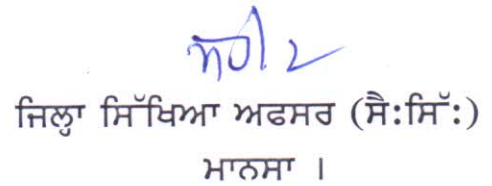 ਸਹੀ/-
ਜਿਲ੍ਹਾ ਸਿੱਖਿਆ ਅਫਸਰ (ਸੈ:ਸਿੱ:)
ਮਾਨਸਾ ।